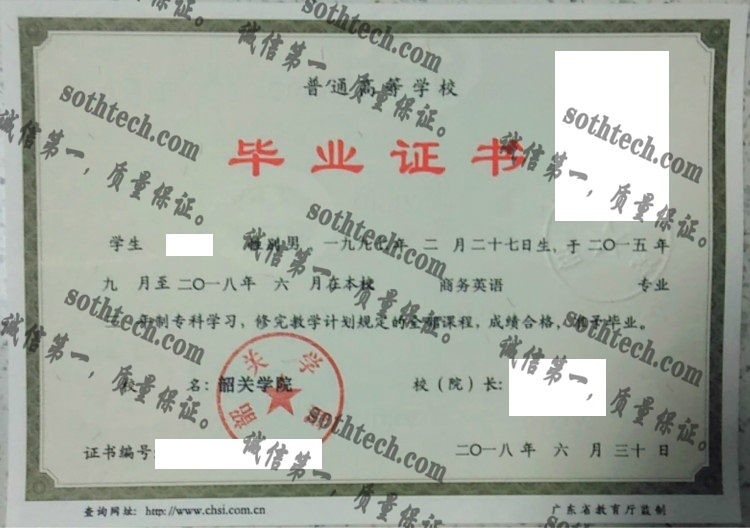 普通高等学校
毕业证书
学生 性别 男 一九九 年 二 月二十七日生，于二〇一五年
九 月至二〇一八年 六 月在本校 商务英语 专业
三 年制专科学习，修完教学计划规定的全部课程，成绩合格，准予毕业。
校 名：韶关学院 校（院）长：
韶关学院
证书编号 二〇一八年 六 月三十日
查询网址：http://www.chsi.com.cn 广东省教育厅监制
sothtech.com
诚信第一，质量保证。
sothtech.com
诚信第一，质量保证。
sothtech.com
诚信第一，质量保证。
sothtech.com
诚信第一，质量保证。
sothtech.com
诚信第一，质量保证。
sothtech.com
诚信第一，质量保证。
sothtech.com
诚信第一，质量保证。